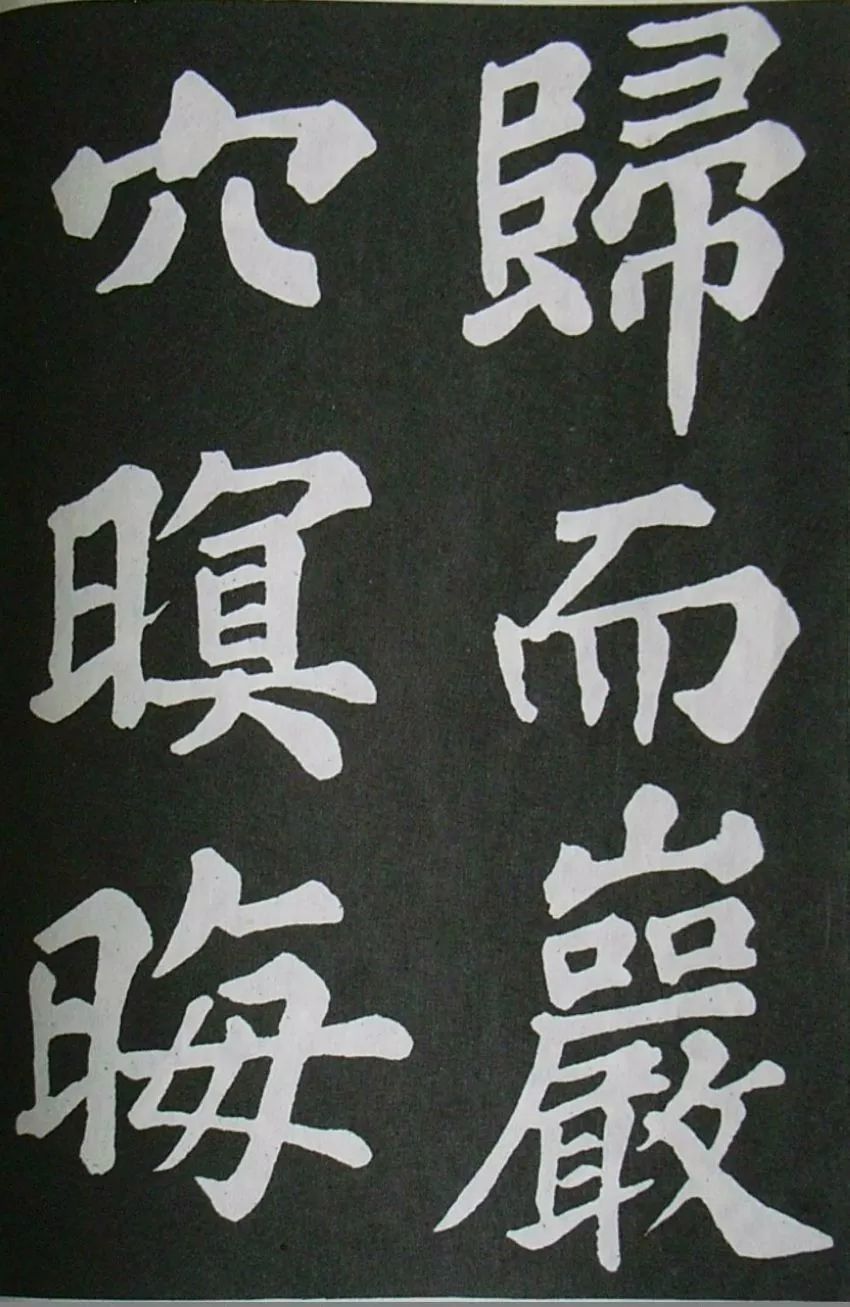 歸而巖
穴暝晦